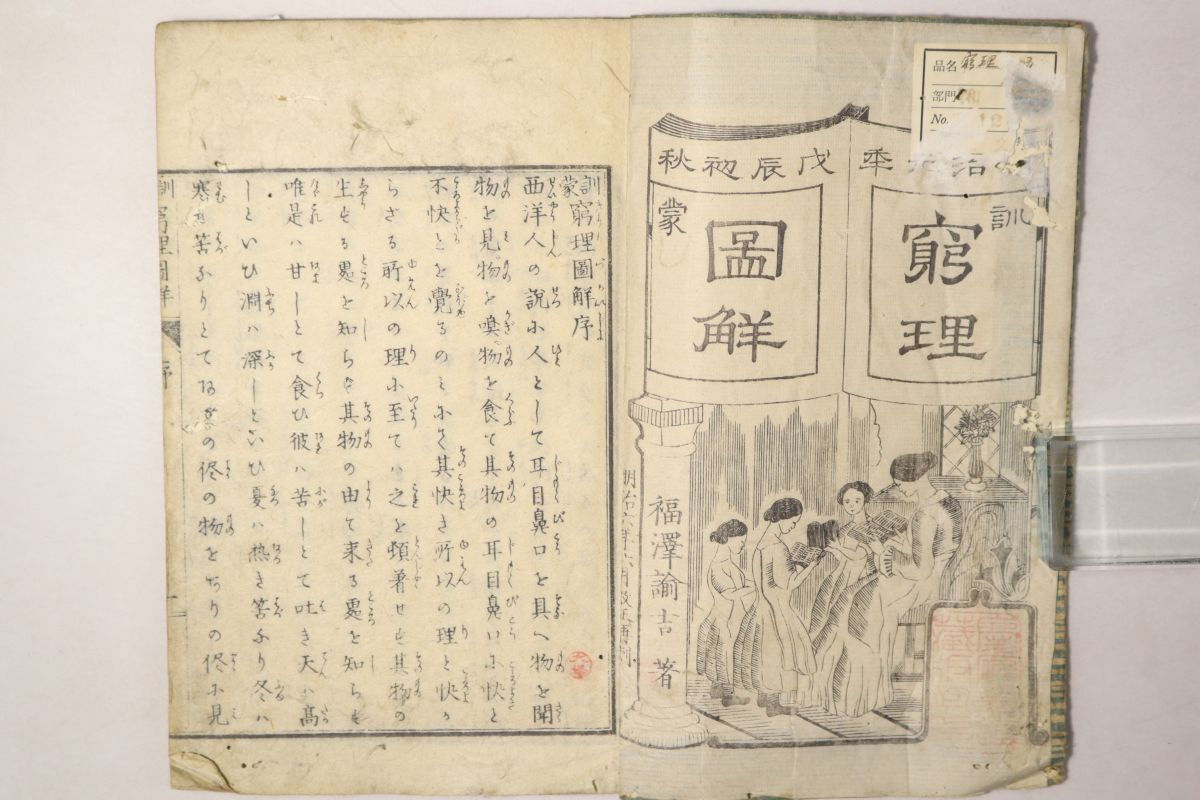 品名 窮理
部門 和
No. 12
明治元年
戊辰初秋
訓
窮理
蒙
圖解
福澤諭吉 著
明治六年六月改正再刻
訓蒙窮理圖解序
西洋人の說に人として耳目鼻口を具へ物を聞
物を見物を嗅物を食て其物の耳目鼻口に快と
不快とを覺るのミにて其快き所以の理と快か
らざる所以の理に至てハ之を頓着せず其物の
生ずる處を知らず其物の由て來る處を知らず
唯是ハ甘しとて食ひ彼ハ苦しとて吐き天ハ高
しといひ淵ハ深しといひ夏ハ热き筈なり冬ハ
寒き筈なりとて
の侭の物を
りの侭に見
訓蒙窮理圖解
序